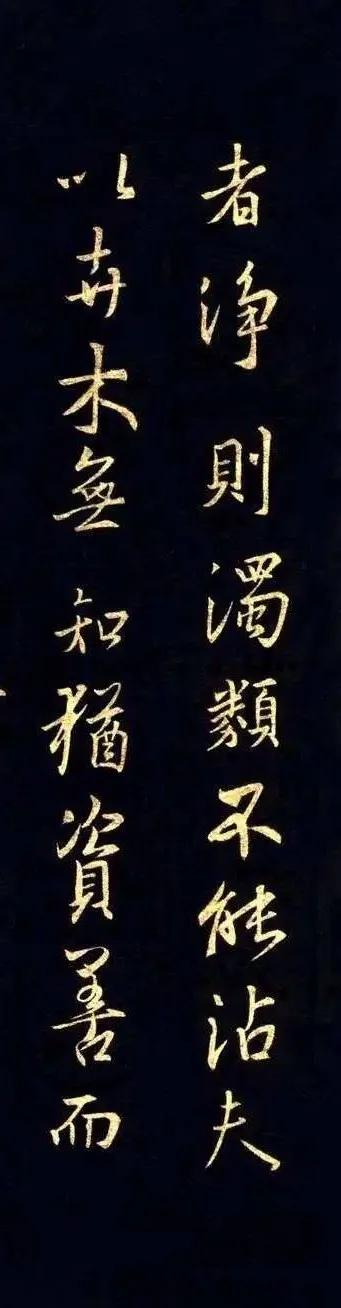 者淨則濁類不能沾夫
以卉木無知猶資善而